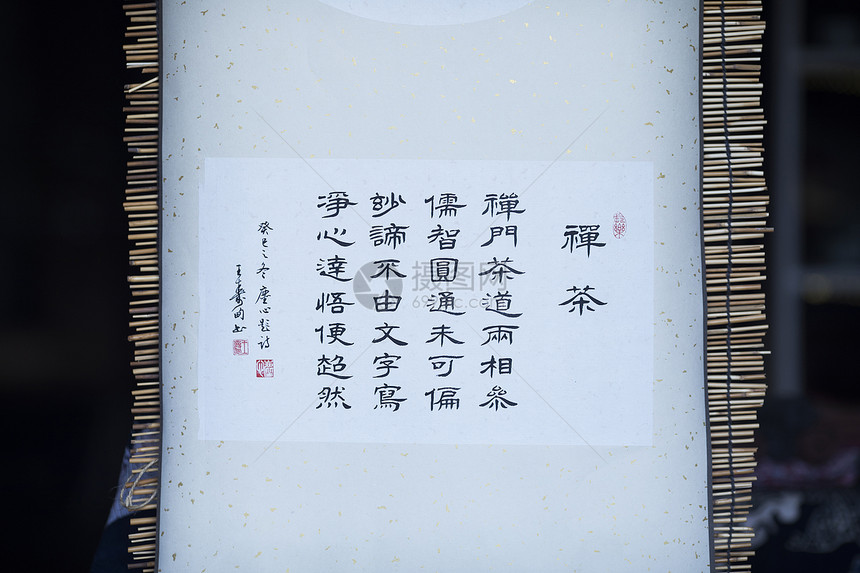 禪茶
禪門茶道兩相參
儒智圓通未可偏
妙諦不由文字寫
淨心達悟便超然
癸巳之冬塵心題詩
王
摄图网